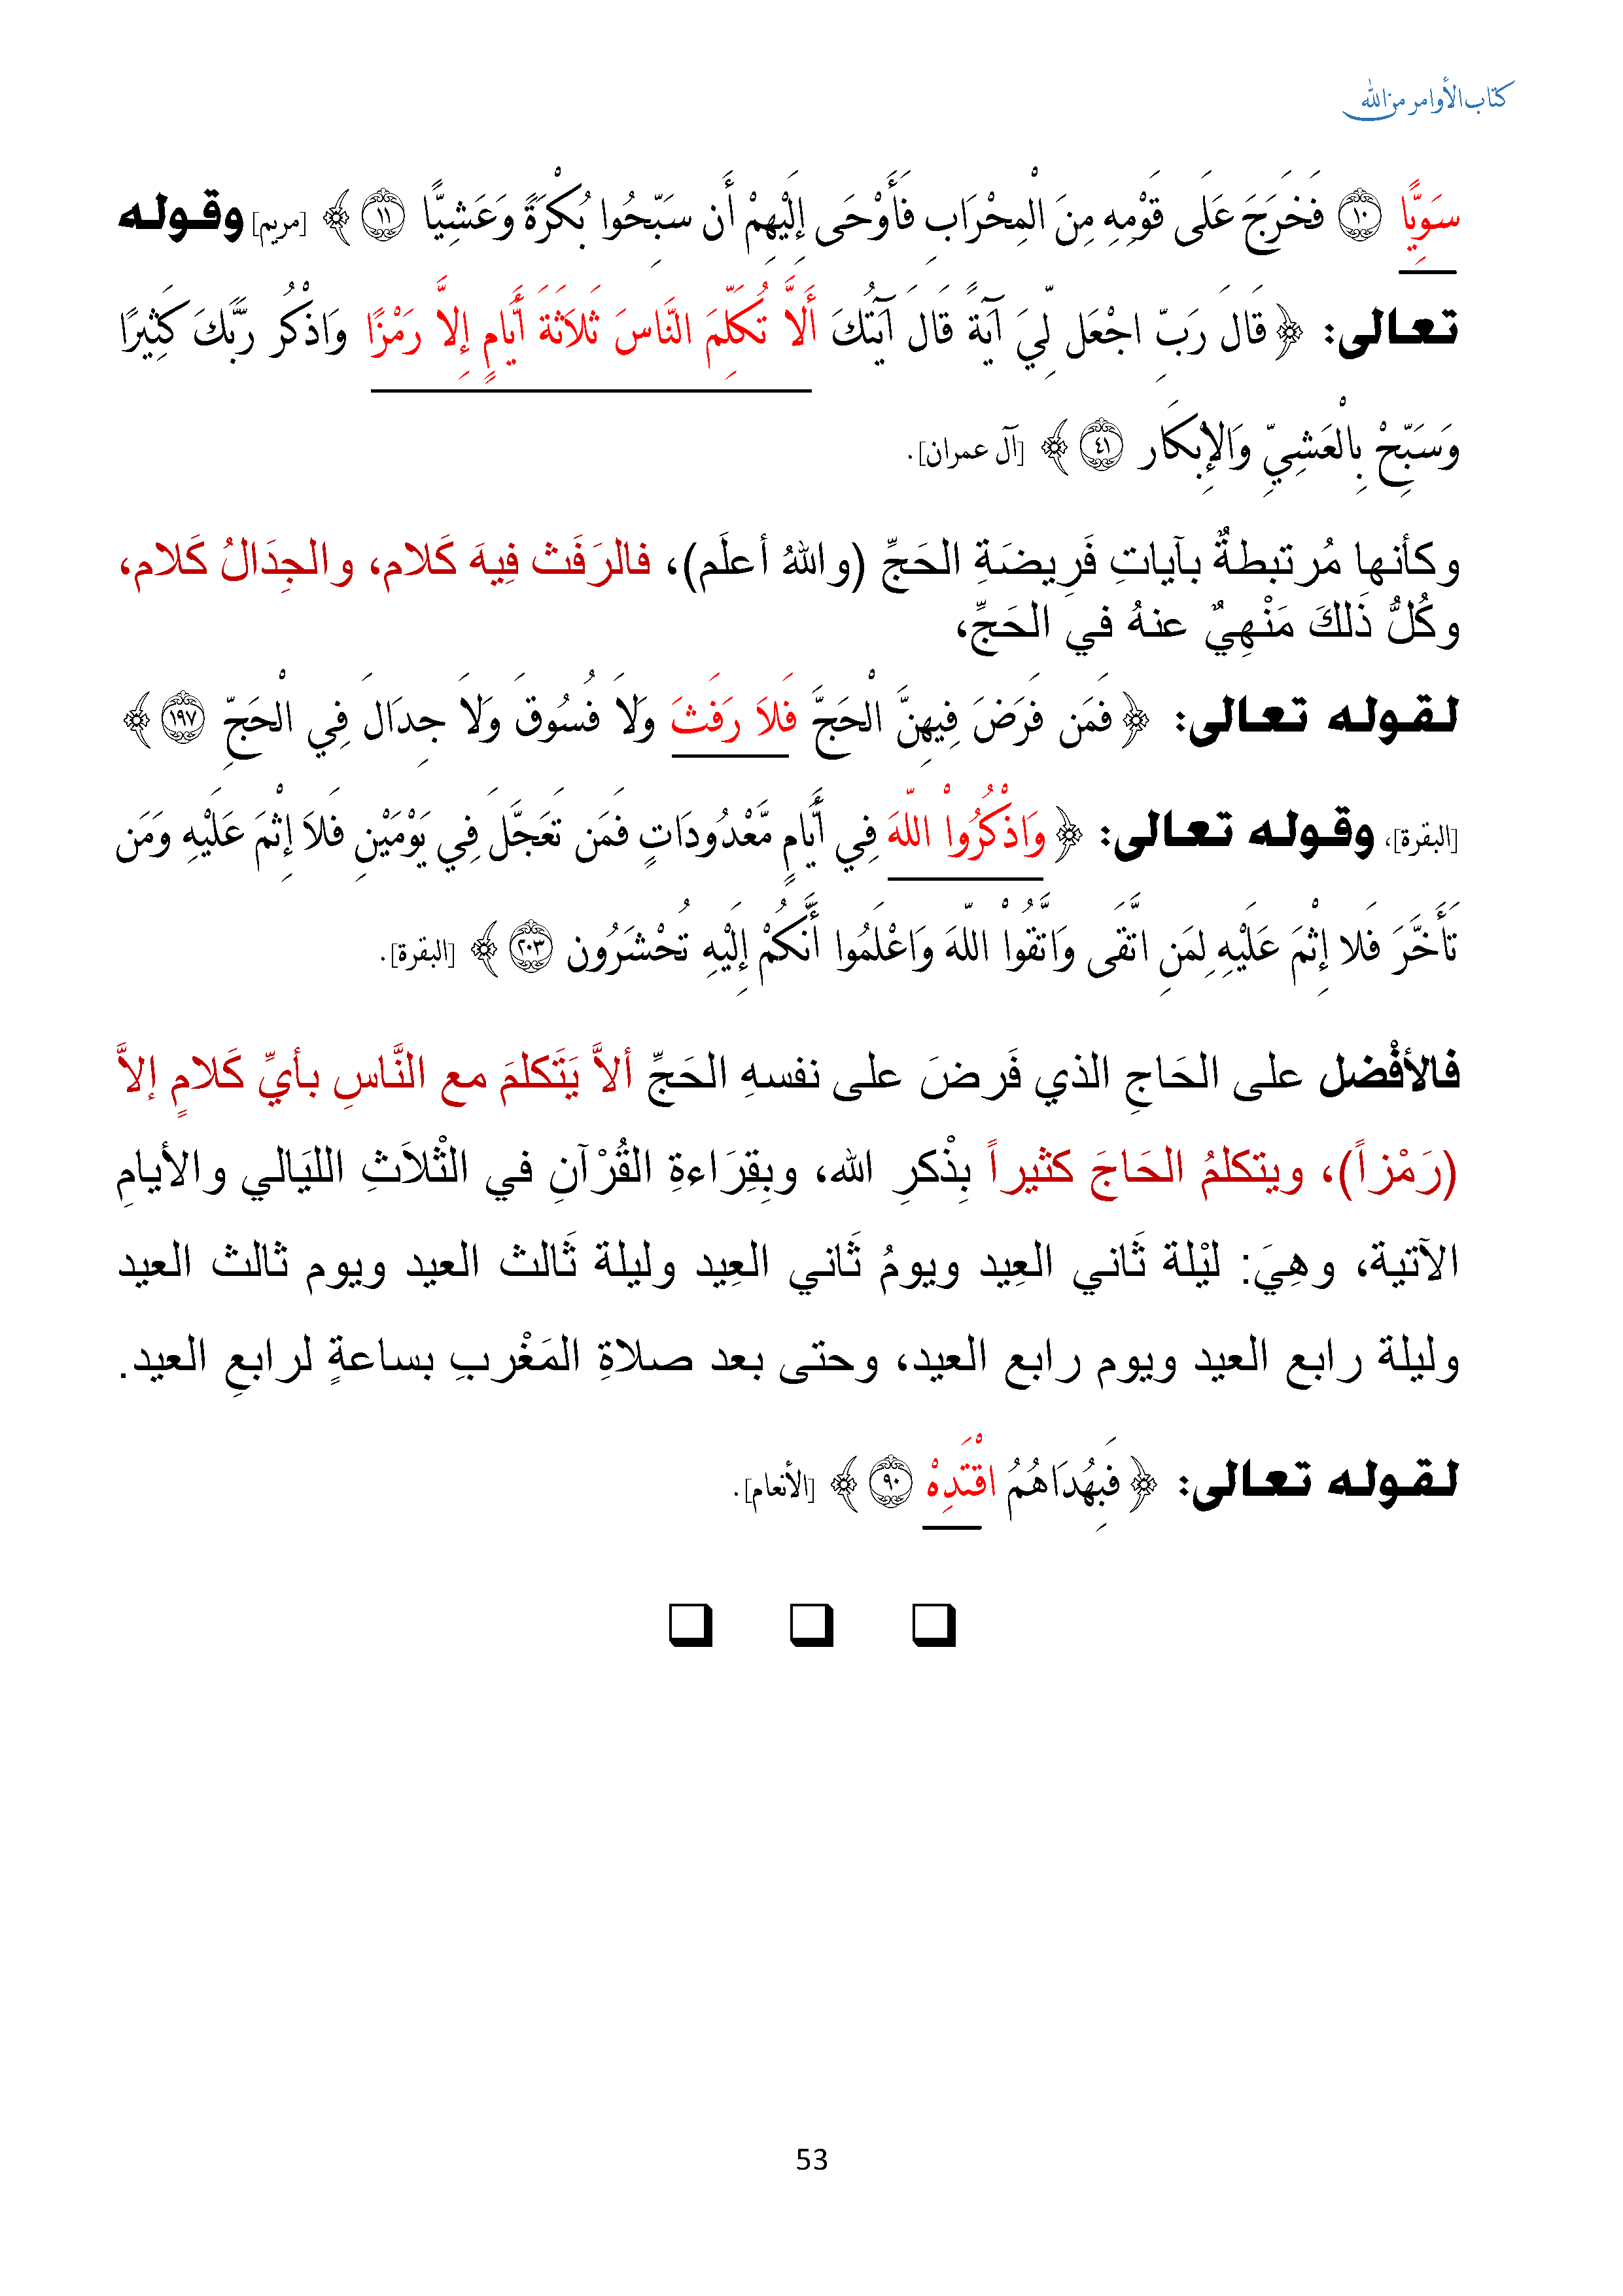 كتاب الأوامر من الله
سَوِيًّا ١٠ فَخَرَجَ عَلَى قَوْمِهِ مِنَ الْمِحْرَابِ فَأَوْحَى إِلَيْهِمْ أَن سَبِّحُوا بُكْرَةً وَعَشِيًّا ١١ ﴾ [مريم] وقوله
تعالى: ﴿ قَالَ رَبِّ اجْعَل لِّيَ آيَةً قَالَ آيَتُكَ أَلاَّ تُكَلِّمَ النَّاسَ ثَلاَثَةَ أَيَّامٍ إِلاَّ رَمْزًا وَاذْكُر رَّبَّكَ كَثِيرًا
وَسَبِّحْ بِالْعَشِيِّ وَالإِبْكَار ٤١ ﴾ [آل عمران].
وكأنها مُرتبطةٌ بآياتِ فَرِيضَةِ الحَجِّ (واللهُ أعلَم)، فالرَفَث فِيهَ كَلام، والجِدَالُ كَلام،
وكُلُّ ذَلكَ مَنْهِيٌ عنهُ في الحَجِّ،
لقوله تعالى: ﴿ فَمَن فَرَضَ فِيهِنَّ الْحَجَّ فَلاَ رَفَثَ وَلاَ فُسُوقَ وَلاَ جِدَالَ فِي الْحَجِّ ١٩٧ ﴾
[البقرة]، وقوله تعالى: ﴿ وَاذْكُرُواْ اللّهَ فِي أَيَّامٍ مَّعْدُودَاتٍ فَمَن تَعَجَّلَ فِي يَوْمَيْنِ فَلاَ إِثْمَ عَلَيْهِ وَمَن
تَأَخَّرَ فَلا إِثْمَ عَلَيْهِ لِمَنِ اتَّقَى وَاتَّقُواْ اللّهَ وَاعْلَمُوا أَنَّكُمْ إِلَيْهِ تُحْشَرُون ٢٠٣ ﴾ [البقرة].
فالأفْضل على الحَاجِ الذي فَرضَ على نفسهِ الحَجِّ ألاَّ يَتَكلمَ مع النَّاسِ بأيِّ كَلامٍ إلاَّ
(رَمْزاً)، ويتكلمُ الحَاجَ كثيراً بِذْكرِ الله، وبِقِرَاءةِ القُرْآنِ في الثْلاَثِ الليَالي والأيامِ
الآتية، وهِيَ: ليْلة ثَاني العِيد ويومُ ثَاني العِيد وليلة ثَالث العيد ويوم ثالث العيد
وليلة رابع العيد ويوم رابع العيد، وحتى بعد صلاةِ المَغْربِ بساعةٍ لرابعِ العيد.
لقوله تعالى: ﴿ فَبِهُدَاهُمُ اقْتَدِهْ ٩٠ ﴾ [الأنعام].
53